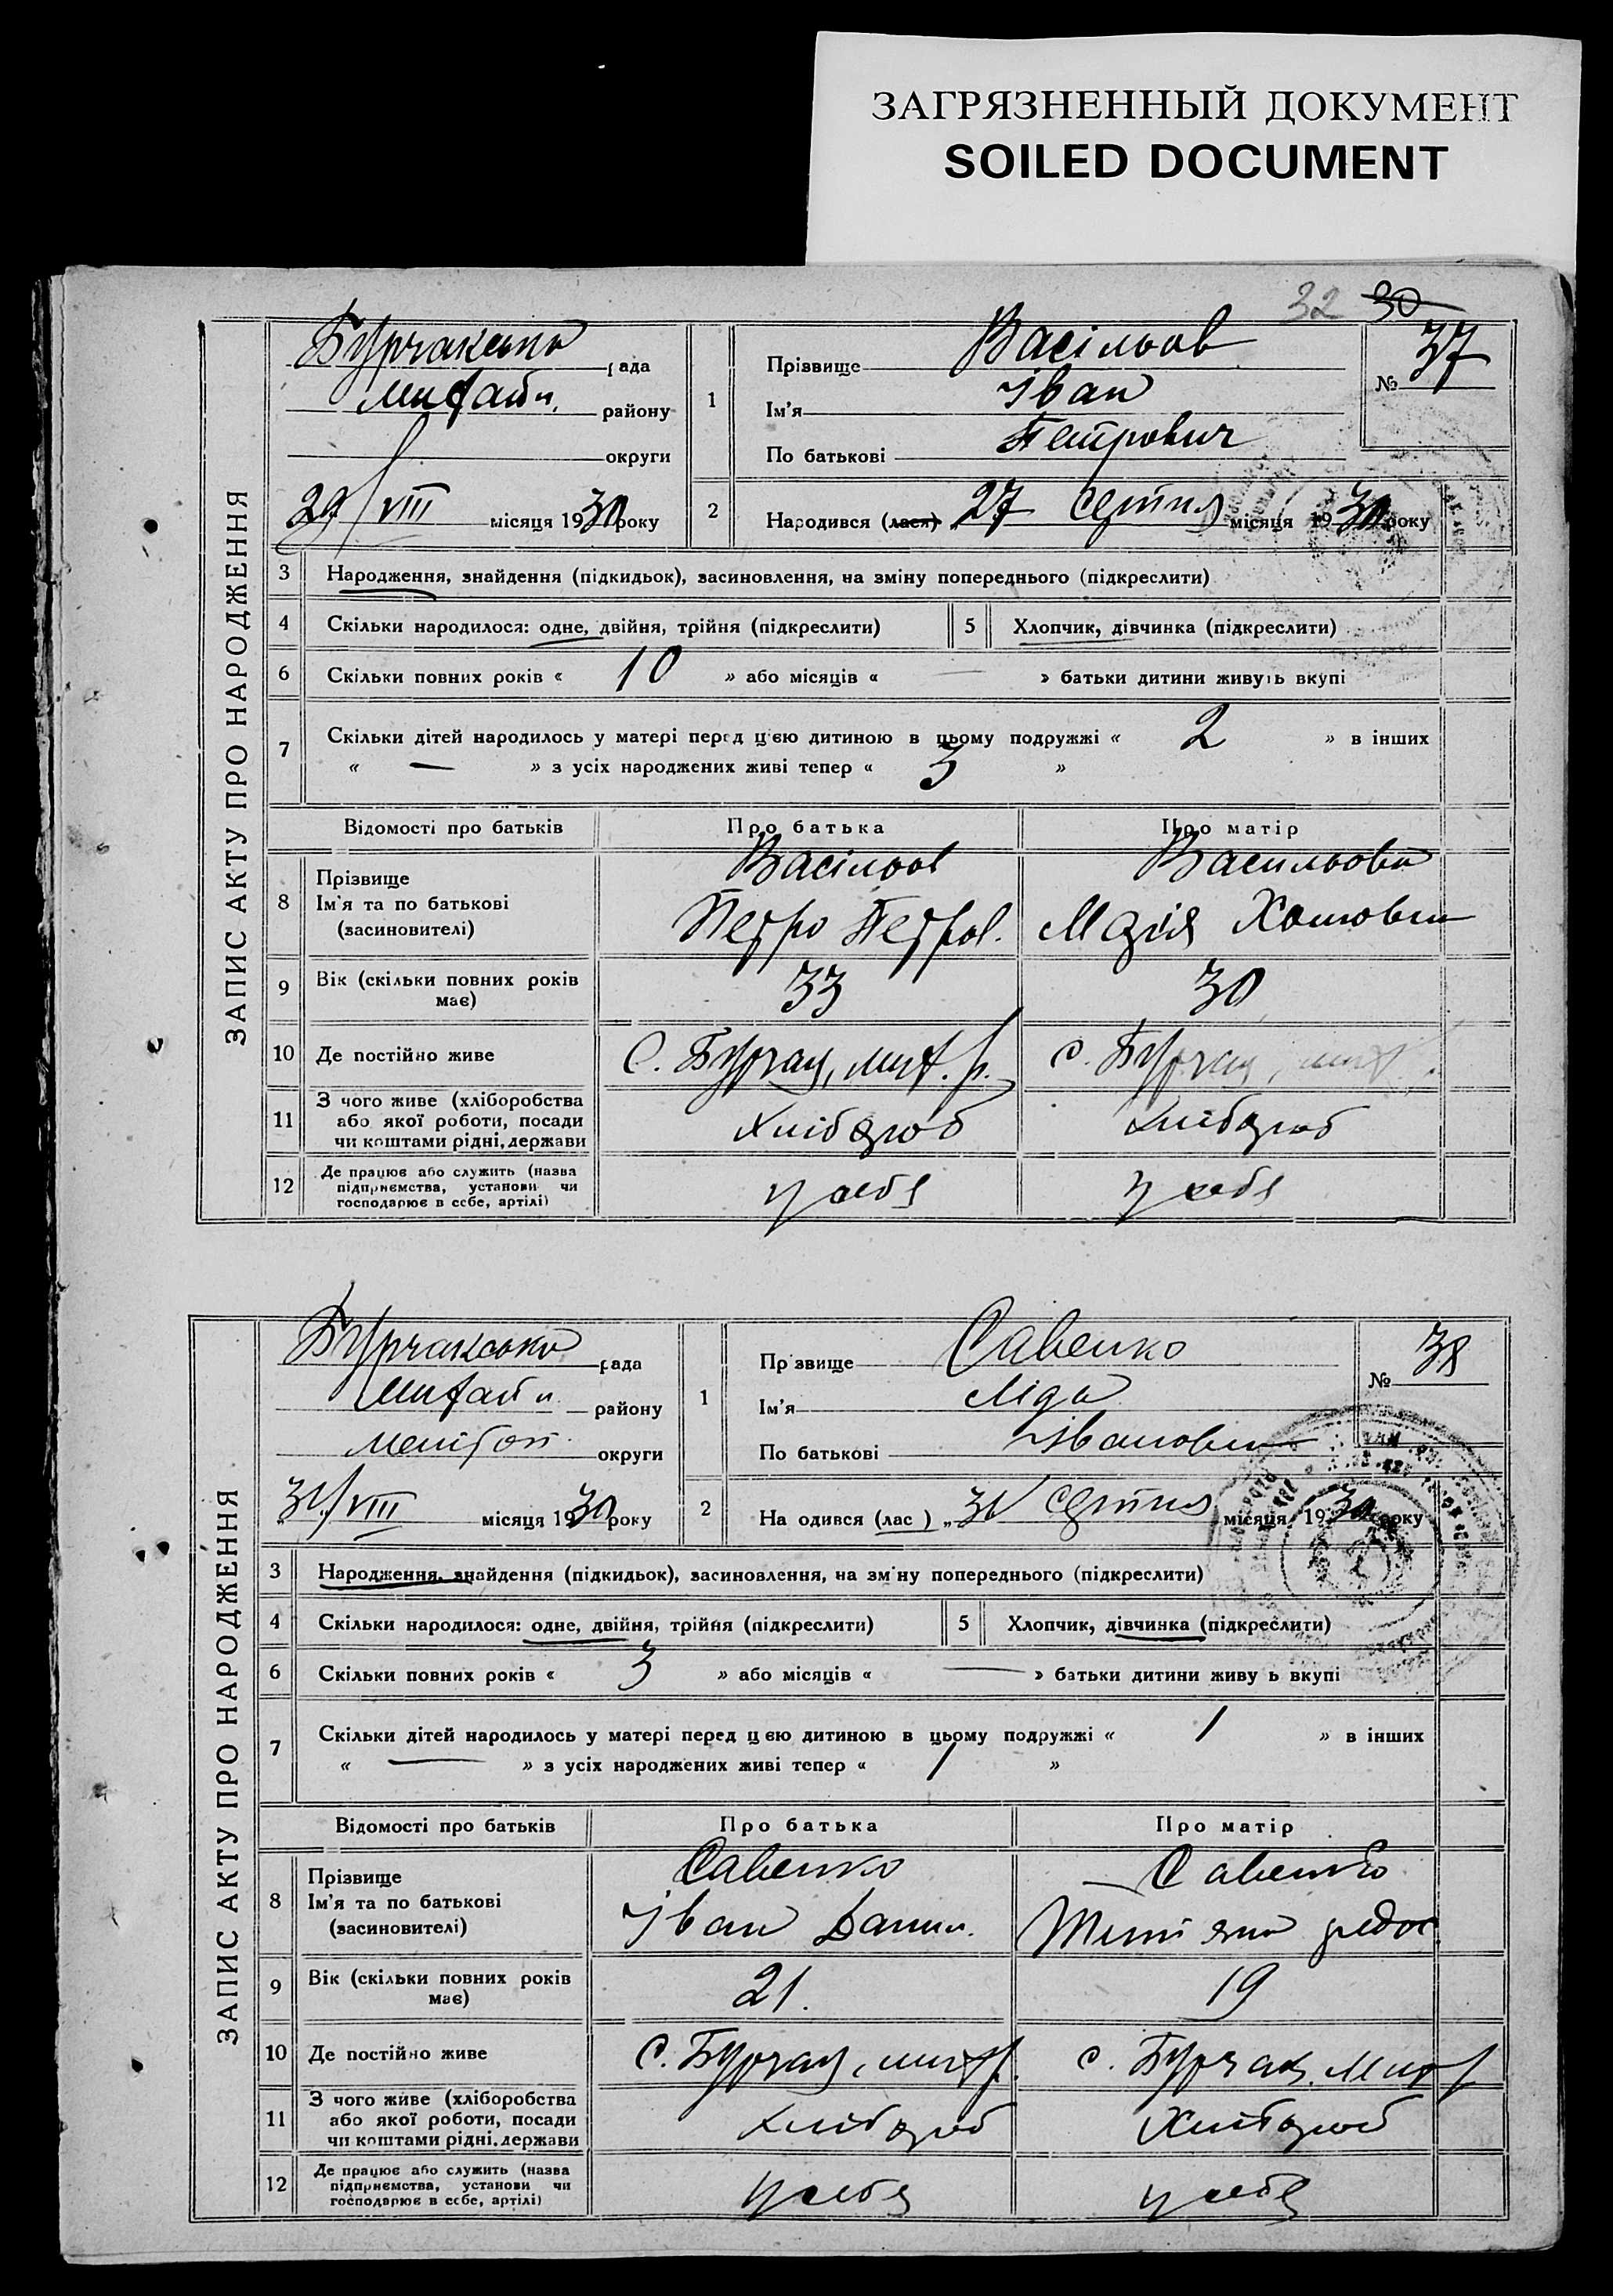 ЗАГРЯЗНЕННЫЙ ДОКУМЕНТ
SOILED DOCUMENT
32 30
ЗАПИС АКТУ ПРО НАРОДЖЕННЯ
Бурчакська рада
району
округи
29/VIII місяця 1930 року
1
Прізвище Васільов
Ім'я Іван
По батькові Петрович
№ 37
2
Народився (лася) 27 серпня місяця 1930 року
3 Народження, знайдення (підкидьок), засиновлення, на зміну попереднього (підкреслити)
4 Скільки народилося: одне, двійня, трійня (підкреслити)
5 Хлопчик, дівчинка (підкреслити)
6 Скільки повних років « 10 » або місяців « — » батьки дитини живуть вкупі
7 Скільки дітей народилось у матері перед цією дитиною в цьому подружжі « 2 » в інших
« — » з усіх народжених живі тепер « 3 »
Відомості про батьків Про батька Про матір
8 Прізвище
Ім'я та по батькові
(засиновителі)
Васільов
Петро Петров.
Васильова
Марія
9 Вік (скільки повних років
має)
33 30
10 Де постійно живе С. Бурчак, с. Бурчак,
11 З чого живе (хліборобства
або якої роботи, посади
чи коштами рідні, держави
хлібороб хлібороб
12 Де працює або служить (назва
підприємства, установи чи
господарює в себе, артілі)
у себе у себе
ЗАПИС АКТУ ПРО НАРОДЖЕННЯ
Бурчакська рада
району
Меліт оп. округи
31/VIII місяця 1930 року
1
Пр звище Савенко
Ім'я Ліда
По батькові Івановна
№ 38
2
На одився (лас ) „31 серпня місяця 1930 року
3 Народження, знайдення (підкидьок), засиновлення, на зм ну попереднього (підкреслити)
4 Скільки народилося: одне, двійня, трійня (підкреслити)
5 Хлопчик, дівчинка (підкреслити)
6 Скільки повних років « 3 » або місяців « — » батьки дитини живу ь вкупі
7 Скільки дітей народилось у матері перед ц єю дитиною в цьому подружжі « 1 » в інших
« — » з усіх народжених живі тепер « 1 »
Відомості про батьків Про батька Про матір
8 Прізвище
Ім'я та по батькові
(засиновителі)
Савенко
Іван Данил.
Савенко
9 Вік (скільки повних років
має)
21. 19
10 Де постійно живе С. Бурчак, с. Бурчак,
11 З чого живе (хліборобства
або якої роботи, посади
чи коштами рідні, держави
хлібороб Хлібороб
12 Де працює або служить (назва
підприємства, установи чи
господарює в себе, артілі)
у себе у себе